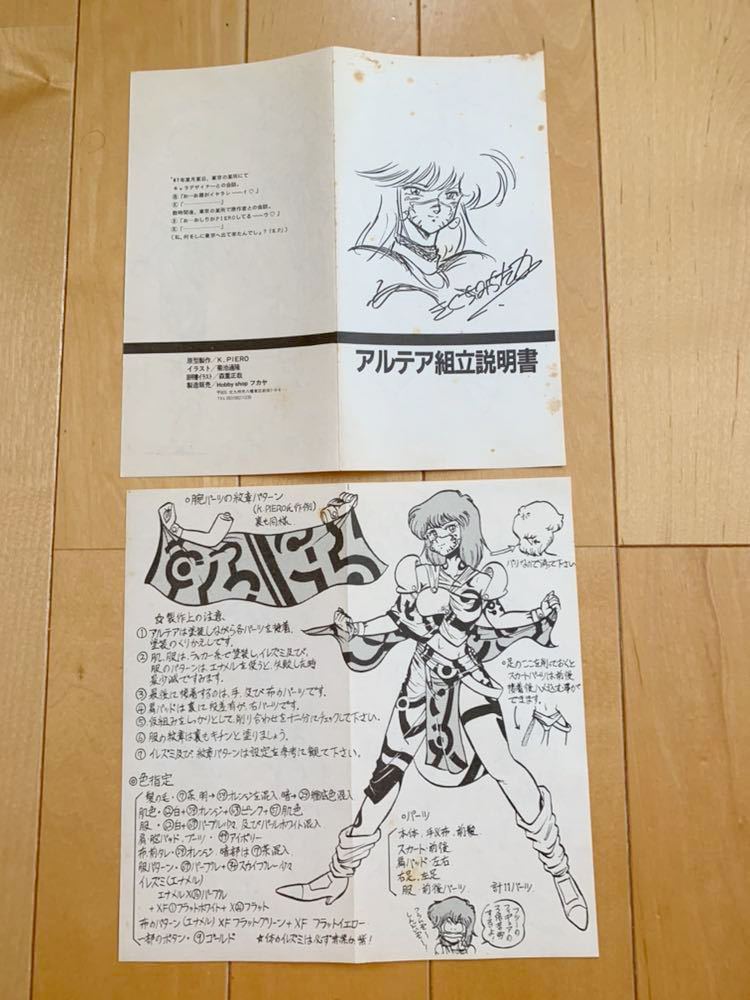 '87年某月某日、東京の某所にて
キャラデザイナーとの会話。
「お…お顔がイヤラシ――イ♡」
「――――――」
数時間後、東京の某所で原作者との会話。
「お…おしりがPIEROしてる――ウ♡」
「――――――」
(私、何をしに東京へ出て来たんでしょ?「K.P」)
原型製作/K.PIERO
イラスト/菊池通隆
説明書イラスト/森重正哉
製造販売/Hobby shop フカヤ
アルテア組立説明書
○腕パーツの紋章パターン
(K.PIERO氏作例)
裏も同様.
バリなので削って下さい
☆製作上の注意.
①アルテアは塗装しながら各パーツを接着.
塗装のくりかえしです.
②肌.服は.ラッカー系で塗装し.イレズミ及び.
服のパターンは.エナメルを使うと.失敗した時
最少減ですみます.
③最後に接着するのは.手.及び布のパーツです.
④肩パッドは裏に段差有が.右パーツです.
⑤仮組みをしっかりとして.削り合わせを十二分にチェックして下さい.
⑥服の紋章は裏もキチンと塗りましょう.
⑦イレズミ及び.紋章パターンは設定を参考に観て下さい.
○足のここを削ておくと
スカートパーツは前後
接着後ハメ込む事が
できます.
◎色指定
髪の毛・⑦茶 明→59オレンジを混入 暗→29艦底色混入
肌色・62白+59オレンジ+63ピンク+51肌色
服・62白+67パープル少々 及びパールホワイト混入
肩・腕パッド.ブーツ・45アイボリー
布.前タレ・59オレンジ.暗部は⑦茶混入
服パターン・67パープル+34スカイブルー少々
イレズミ(エナメル)
エナメルX⑯パープル
布のパターン(エナメル) XFフラットグリーン+XFフラットイエロー
一部のボタン・⑨ゴールド
☆体のイレズミは必ず青紫か紫!
○パーツ
本体.手&布.前髪
スカート・前後
肩パッド・左右
右足.左足
服.前後パーツ.
計11パーツ.